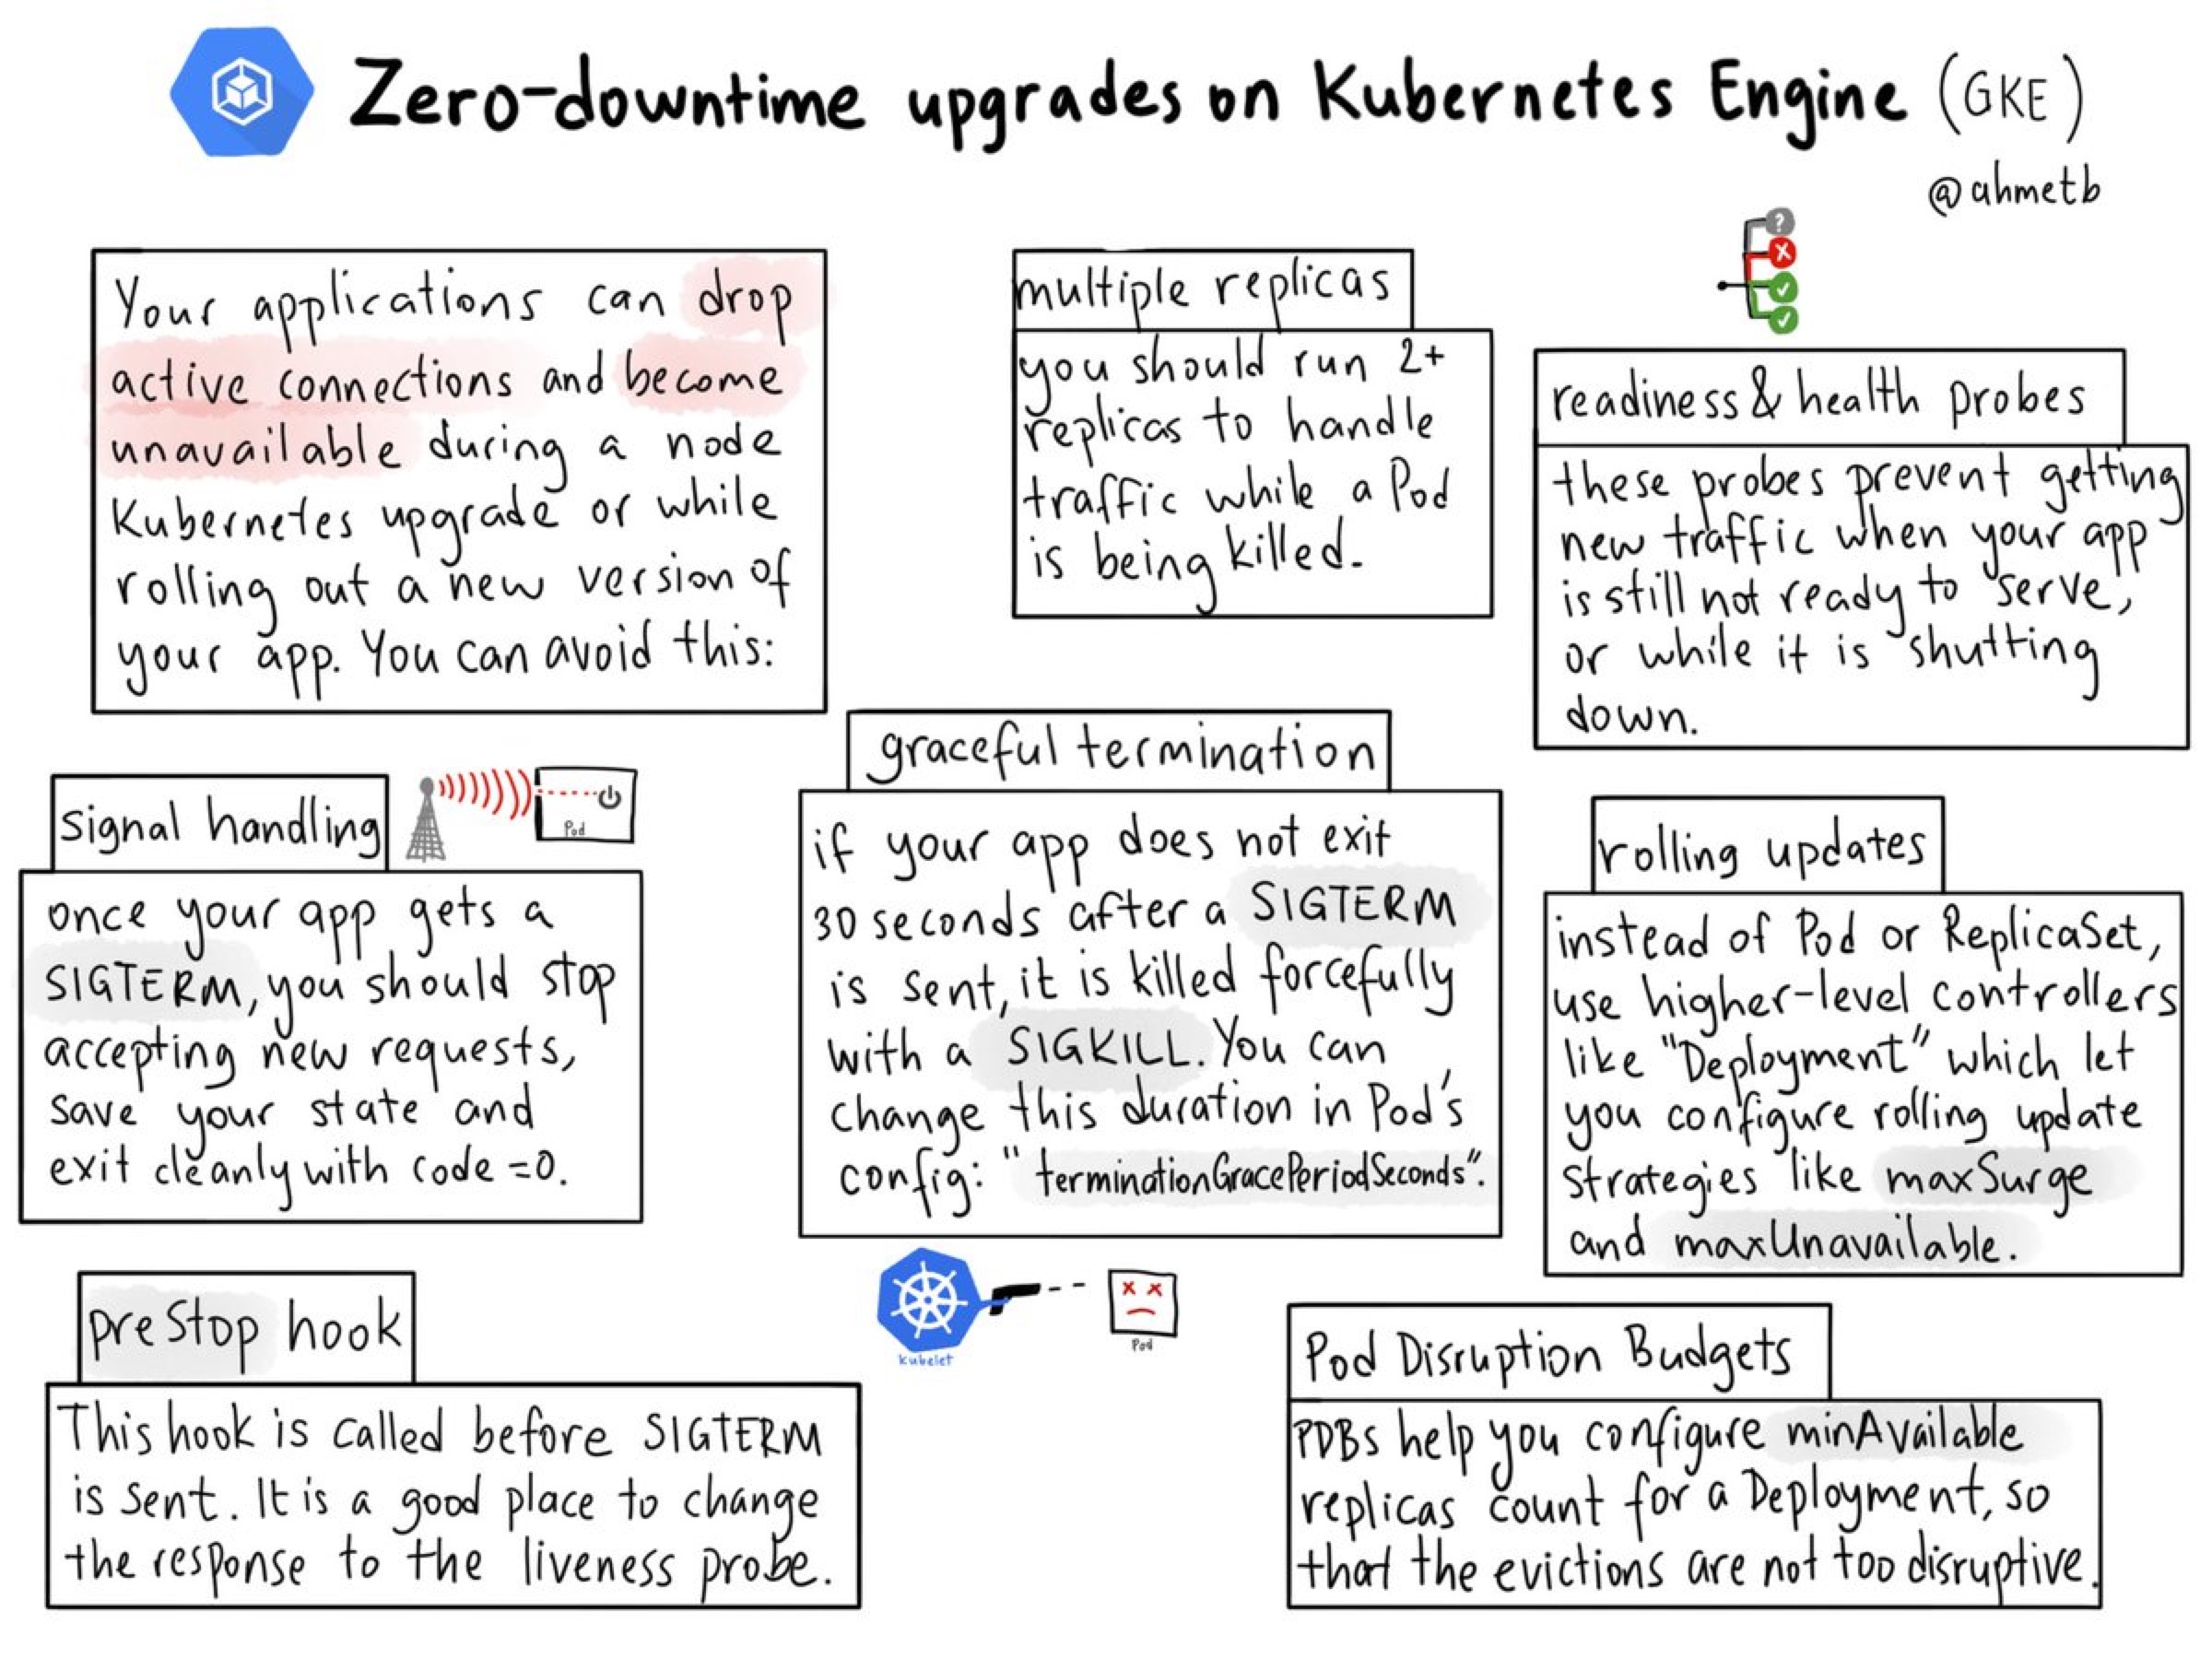 Zero-downtime upgrades on Kubernetes Engine (GKE)
@ahmetb
Your applications can drop
active connections and become
unavailable during a node
Kubernetes upgrade or while
rolling out a new version of
your app. You can avoid this:
multiple replicas
you should run 2+
replicas to handle
traffic while a Pod
is being killed.
?
readiness & health probes
these probes prevent getting
new traffic when your app
is still not ready to serve,
or while it is shutting
down.
signal handling
Pod
once your app gets a
SIGTERM, you should stop
accepting new requests,
save your state and
exit cleanly with code=0.
graceful termination
if your app does not exit
30 seconds after a SIGTERM
is sent, it is killed forcefully
with a SIGKILL. You can
change this duration in Pod's
config: "terminationGracePeriodSeconds".
rolling updates
instead of Pod or ReplicaSet,
use higher-level controllers
like "Deployment" which let
you configure rolling update
strategies like maxSurge
and maxUnavailable.
preStop hook
This hook is called before SIGTERM
is sent. It is a good place to change
the response to the liveness probe.
kubelet
Pod
Pod Disruption Budgets
PDBs help you configure minAvailable
replicas count for a Deployment, so
that the evictions are not too disruptive.